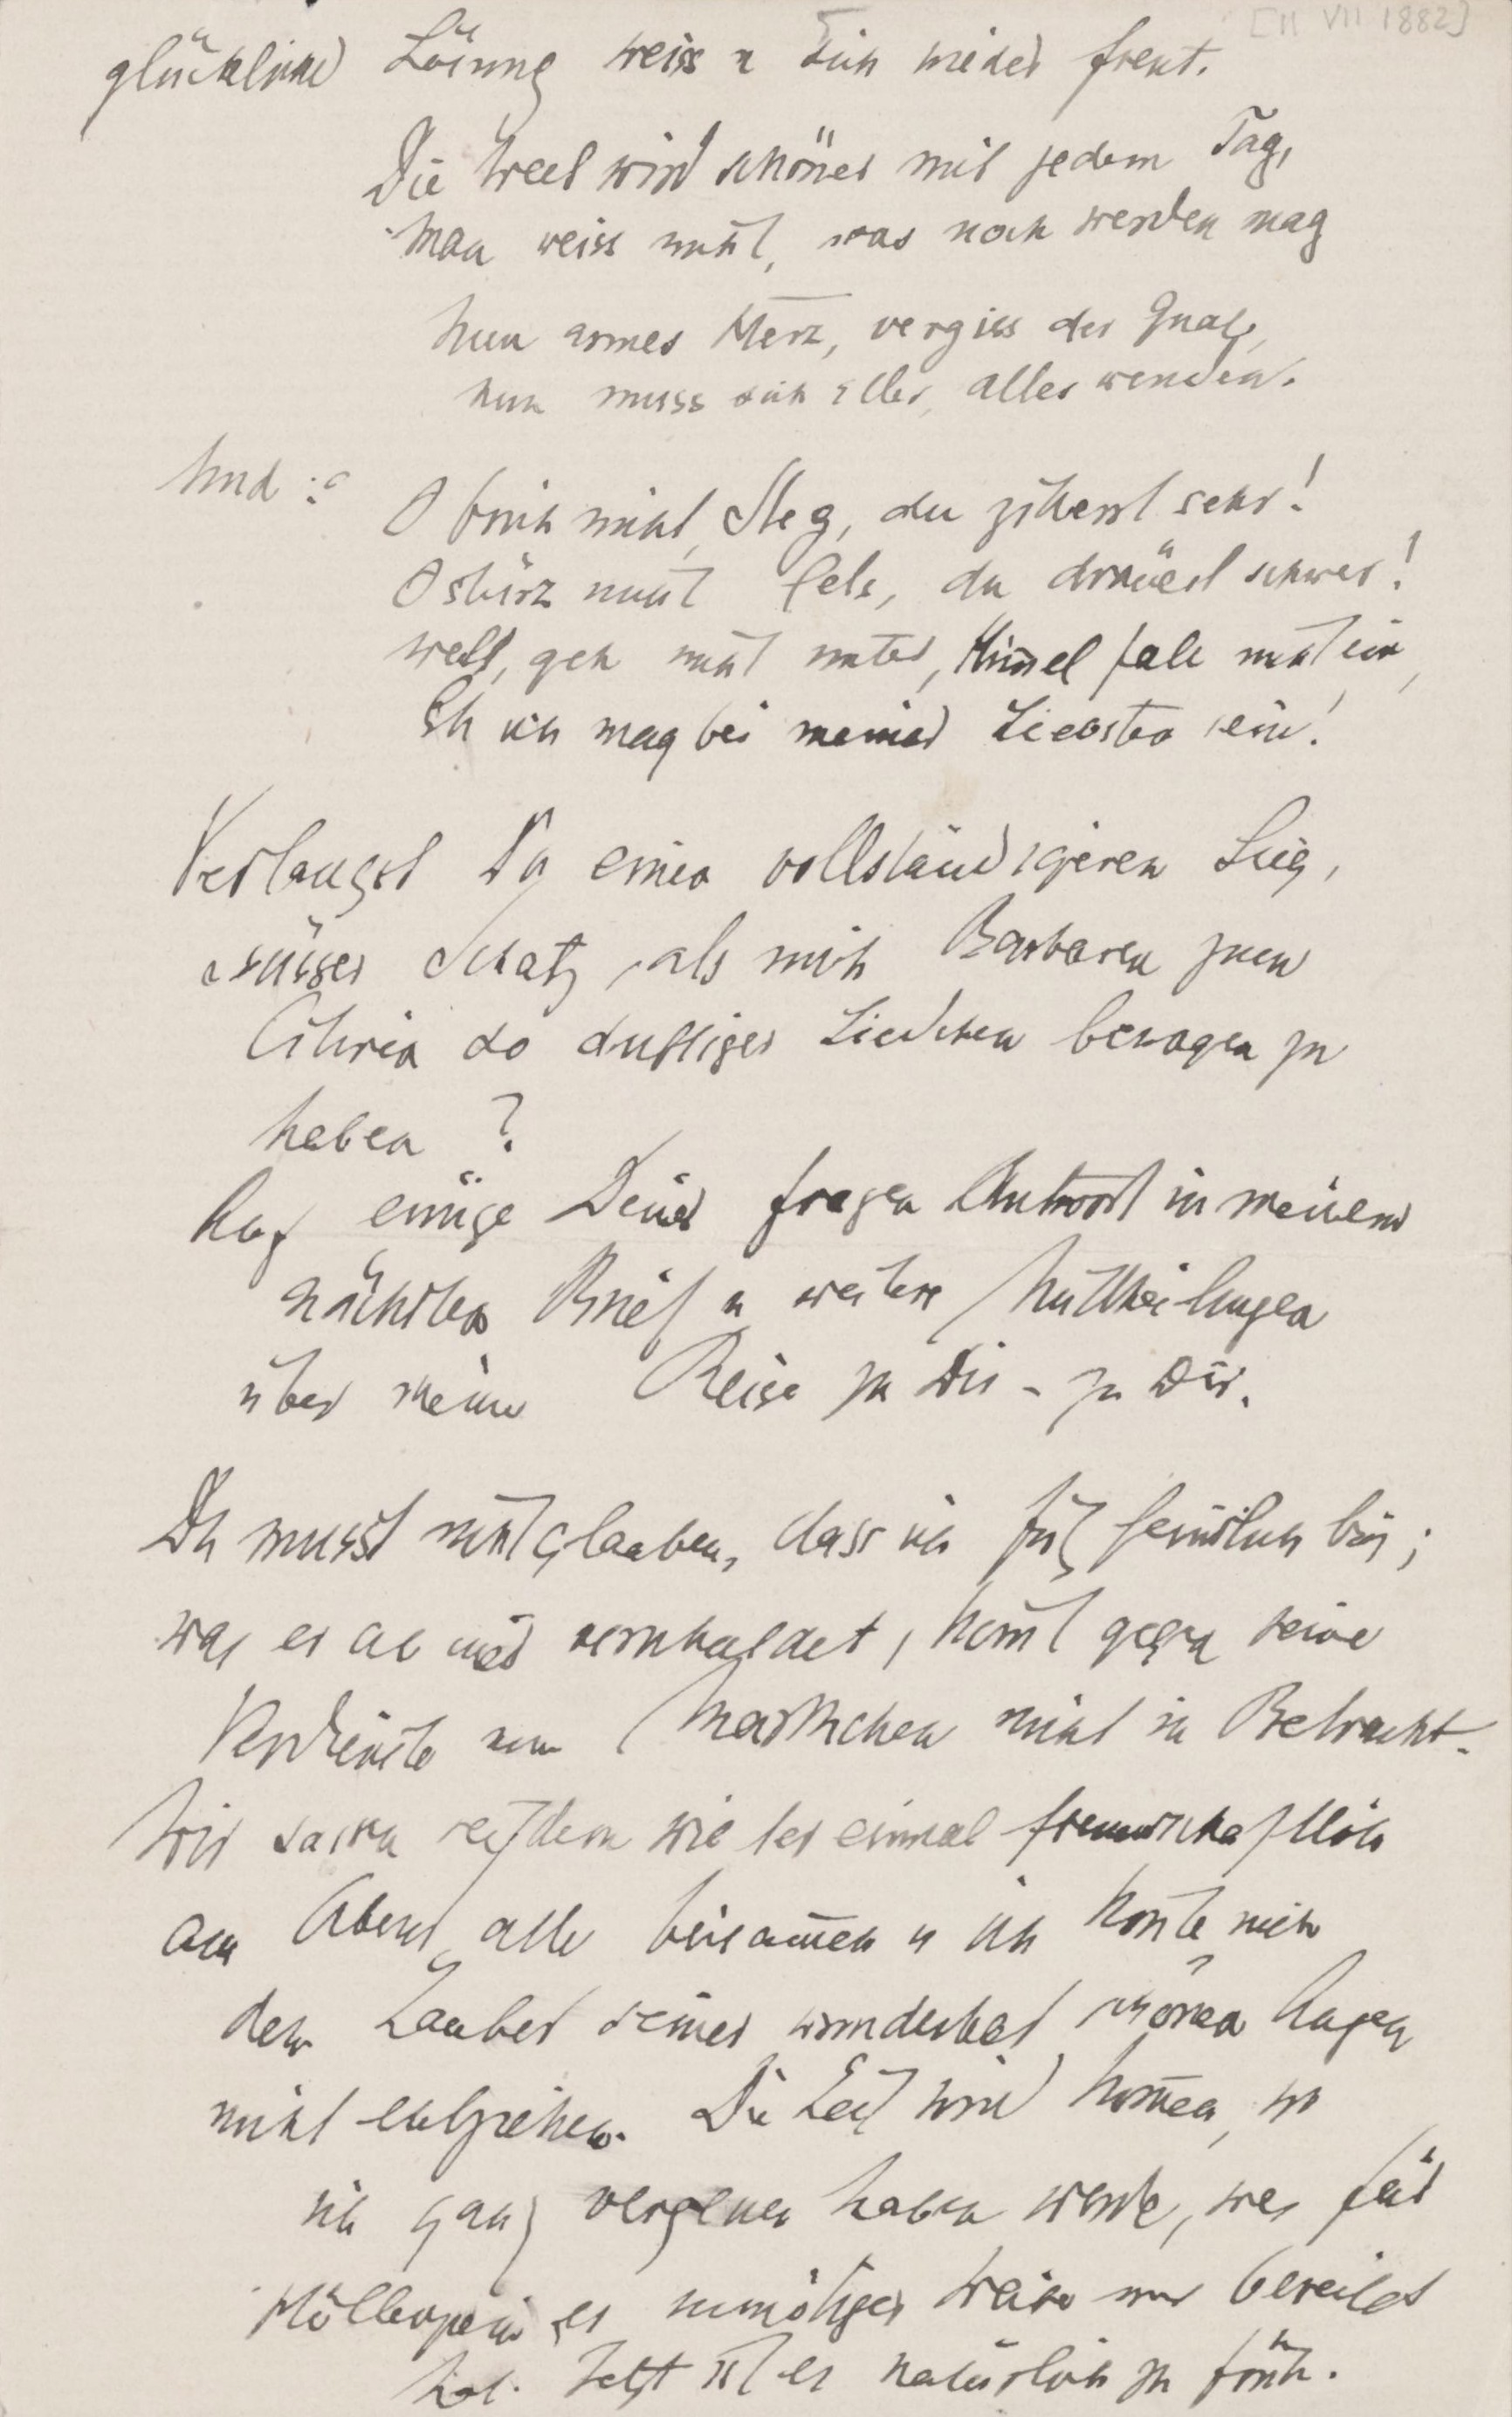 [11 VII 1882]
glückliche Lösung weiss u sich wieder freut.
Die Welt wird schöner mit jedem Tag,
Man weiss nicht, was noch werden mag
Nun armes Herz, vergiss der Qual,
nun muss sich alles, alles wenden.
Und :
O brich nicht, Steg, du zitterst sehr!
O stürz nicht Fels, du dräuest schwer!
Welt, geh nicht unter, Him̄el fall nicht ein,
Eh ich mag bei meiner Liebsten sein!
Verlangst Du einen vollständigeren Sieg,
süsser Schatz, als mich Barbaren zum
Citiren so duftiger Liedchen bewogen zu
haben ?
Auf einige Deiner Fragen Antwort in meinem
nächsten Brief u weitere Mittheilungen
über meine Reise zu Dir – zu Dir.
Du musst nicht glauben, dass ich Fritz feindlich bin;
was er an mir verschuldet, kom̄t gegen seine
Verdienste um Marthchen nicht in Betracht.
Wir sassen seitdem wieder einmal freundschaftlich
am Abend alle beisam̄en u ich kon̄te mich
dem Zauber seiner wunderbar schönen Augen
nicht entziehen. Die Zeit wird kom̄en, wo
ich ganz vergessen haben werde, was für
Höllenpein er unnötiger Weise mir bereitet
hat. Jetzt ist es natürlich zu früh.